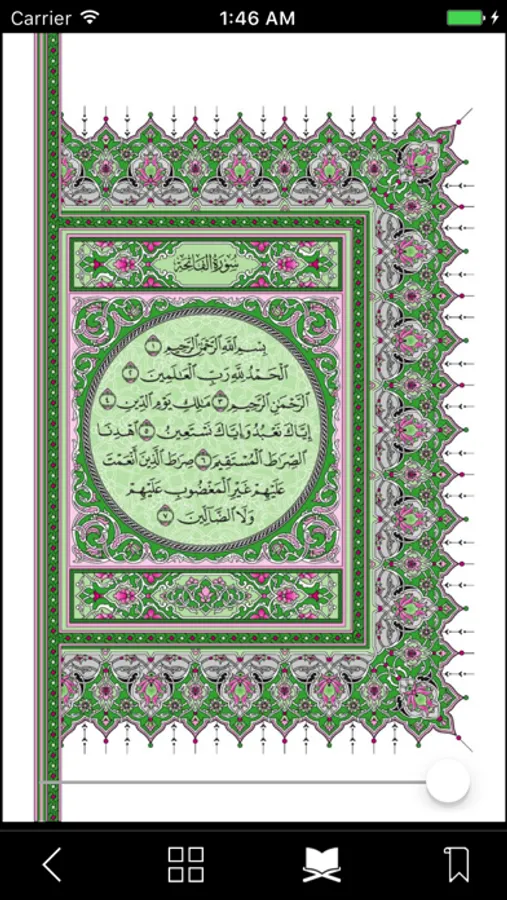 Carrier 1:46 AM
سُورَةُ الفَاتِحَةِ
بِسْمِ ٱللَّهِ ٱلرَّحْمَٰنِ ٱلرَّحِيمِ ١
ٱلْحَمْدُ لِلَّهِ رَبِّ ٱلْعَٰلَمِينَ ٢
ٱلرَّحْمَٰنِ ٱلرَّحِيمِ ٣ مَٰلِكِ يَوْمِ ٱلدِّينِ ٤
إِيَّاكَ نَعْبُدُ وَإِيَّاكَ نَسْتَعِينُ ٥ ٱهْدِنَا
ٱلصِّرَٰطَ ٱلْمُسْتَقِيمَ ٦ صِرَٰطَ ٱلَّذِينَ أَنْعَمْتَ
عَلَيْهِمْ غَيْرِ ٱلْمَغْضُوبِ عَلَيْهِمْ
وَلَا ٱلضَّآلِّينَ ٧